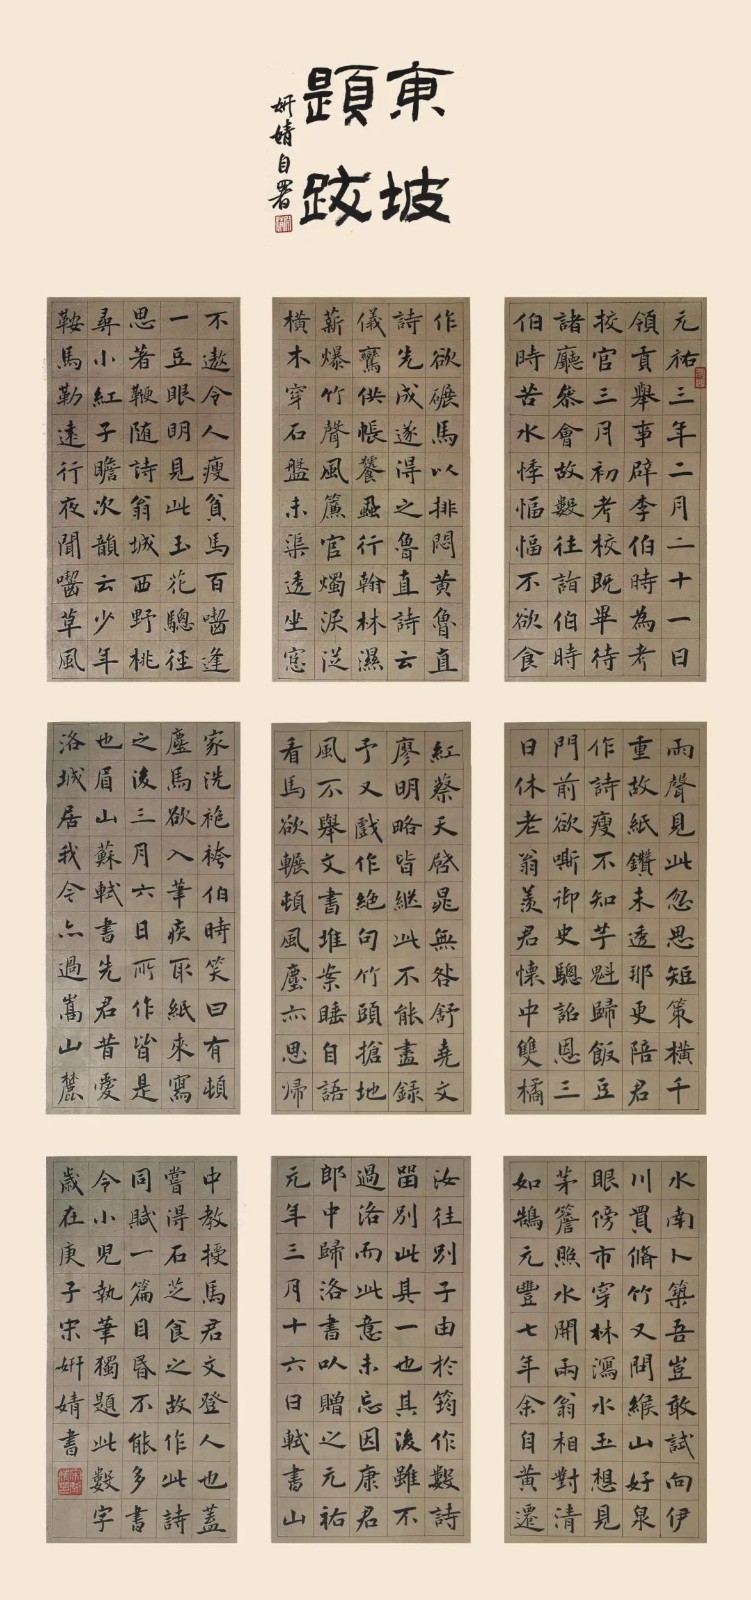 東坡
題跋
妍婧自署
元祐三年二月二十一日
領貢舉事辟李伯時為考
挍官三月初考校既畢待
諸廳參會故數往詣伯時
伯時苦水悸愊愊不欲食
作欲碾馬以排悶黃魯直
詩先成遂得之魯直詩云
儀鸞供帳饕蝨行翰林濕
薪爆竹聲風簾官燭淚從
橫木穿石盤未渠透坐窓
不遨令人瘦貧馬百齧逢
一豆眼明見此玉花驄徑
思著鞭隨詩翁城西野桃
尋小紅子瞻次韻云少年
鞍馬勒遠行夜聞齧草風
雨聲見此忽思短策橫千
重故紙鑽未透那更陪君
作詩瘦不知芋魁歸飯豆
門前欲嘶御史驄詔恩三
日休老翁羨君懷中雙橘
紅蔡天啓晁無咎舒堯文
廖明略皆繼此不能盡錄
予又戲作絕句竹頭搶地
風不舉文書堆案睡自語
看馬欲輾頓風塵亦思歸
家洗袍袴伯時笑曰有頓
塵馬欲入筆疾取紙來寫
之後三月六日所作皆是
也眉山蘇軾書先君昔愛
洛城居我今亦過嵩山麓
水南卜築吾豈敢試向伊
川買脩竹又聞緱山好泉
眼傍市穿林瀉水玉想見
茅簷照水開兩翁相對清
如鵠元豐七年余自黃遷
汝往別子由於筠作數詩
留別此其一也其後雖不
過洛而此意未忘因康君
郎中歸洛書以贈之元祐
元年三月十六日軾書山
中教授馬君文登人也蓋
嘗得石芝食之故作此詩
同賦一篇目昏不能多書
令小兒執筆獨題此數字
歲在庚子宋妍婧書